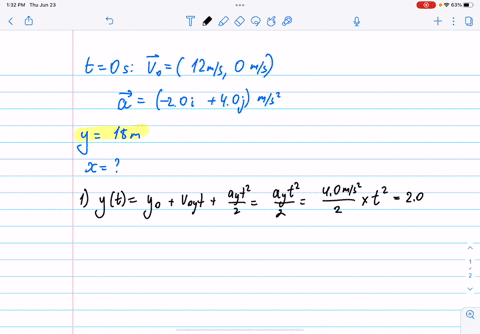 1:32 PM Thu Jun 23
63%
t = 0 s: V⃗₀ = ( 12 m/s, 0 m/s)
a⃗ = (-2.0i + 4.0j) m/s²
y = 18m
x = ?
1) y(t) = y₀ + V₀yt + ayt²/2 = ayt²/2 = 4.0 m/s²/2 × t² = 2.0
1
2